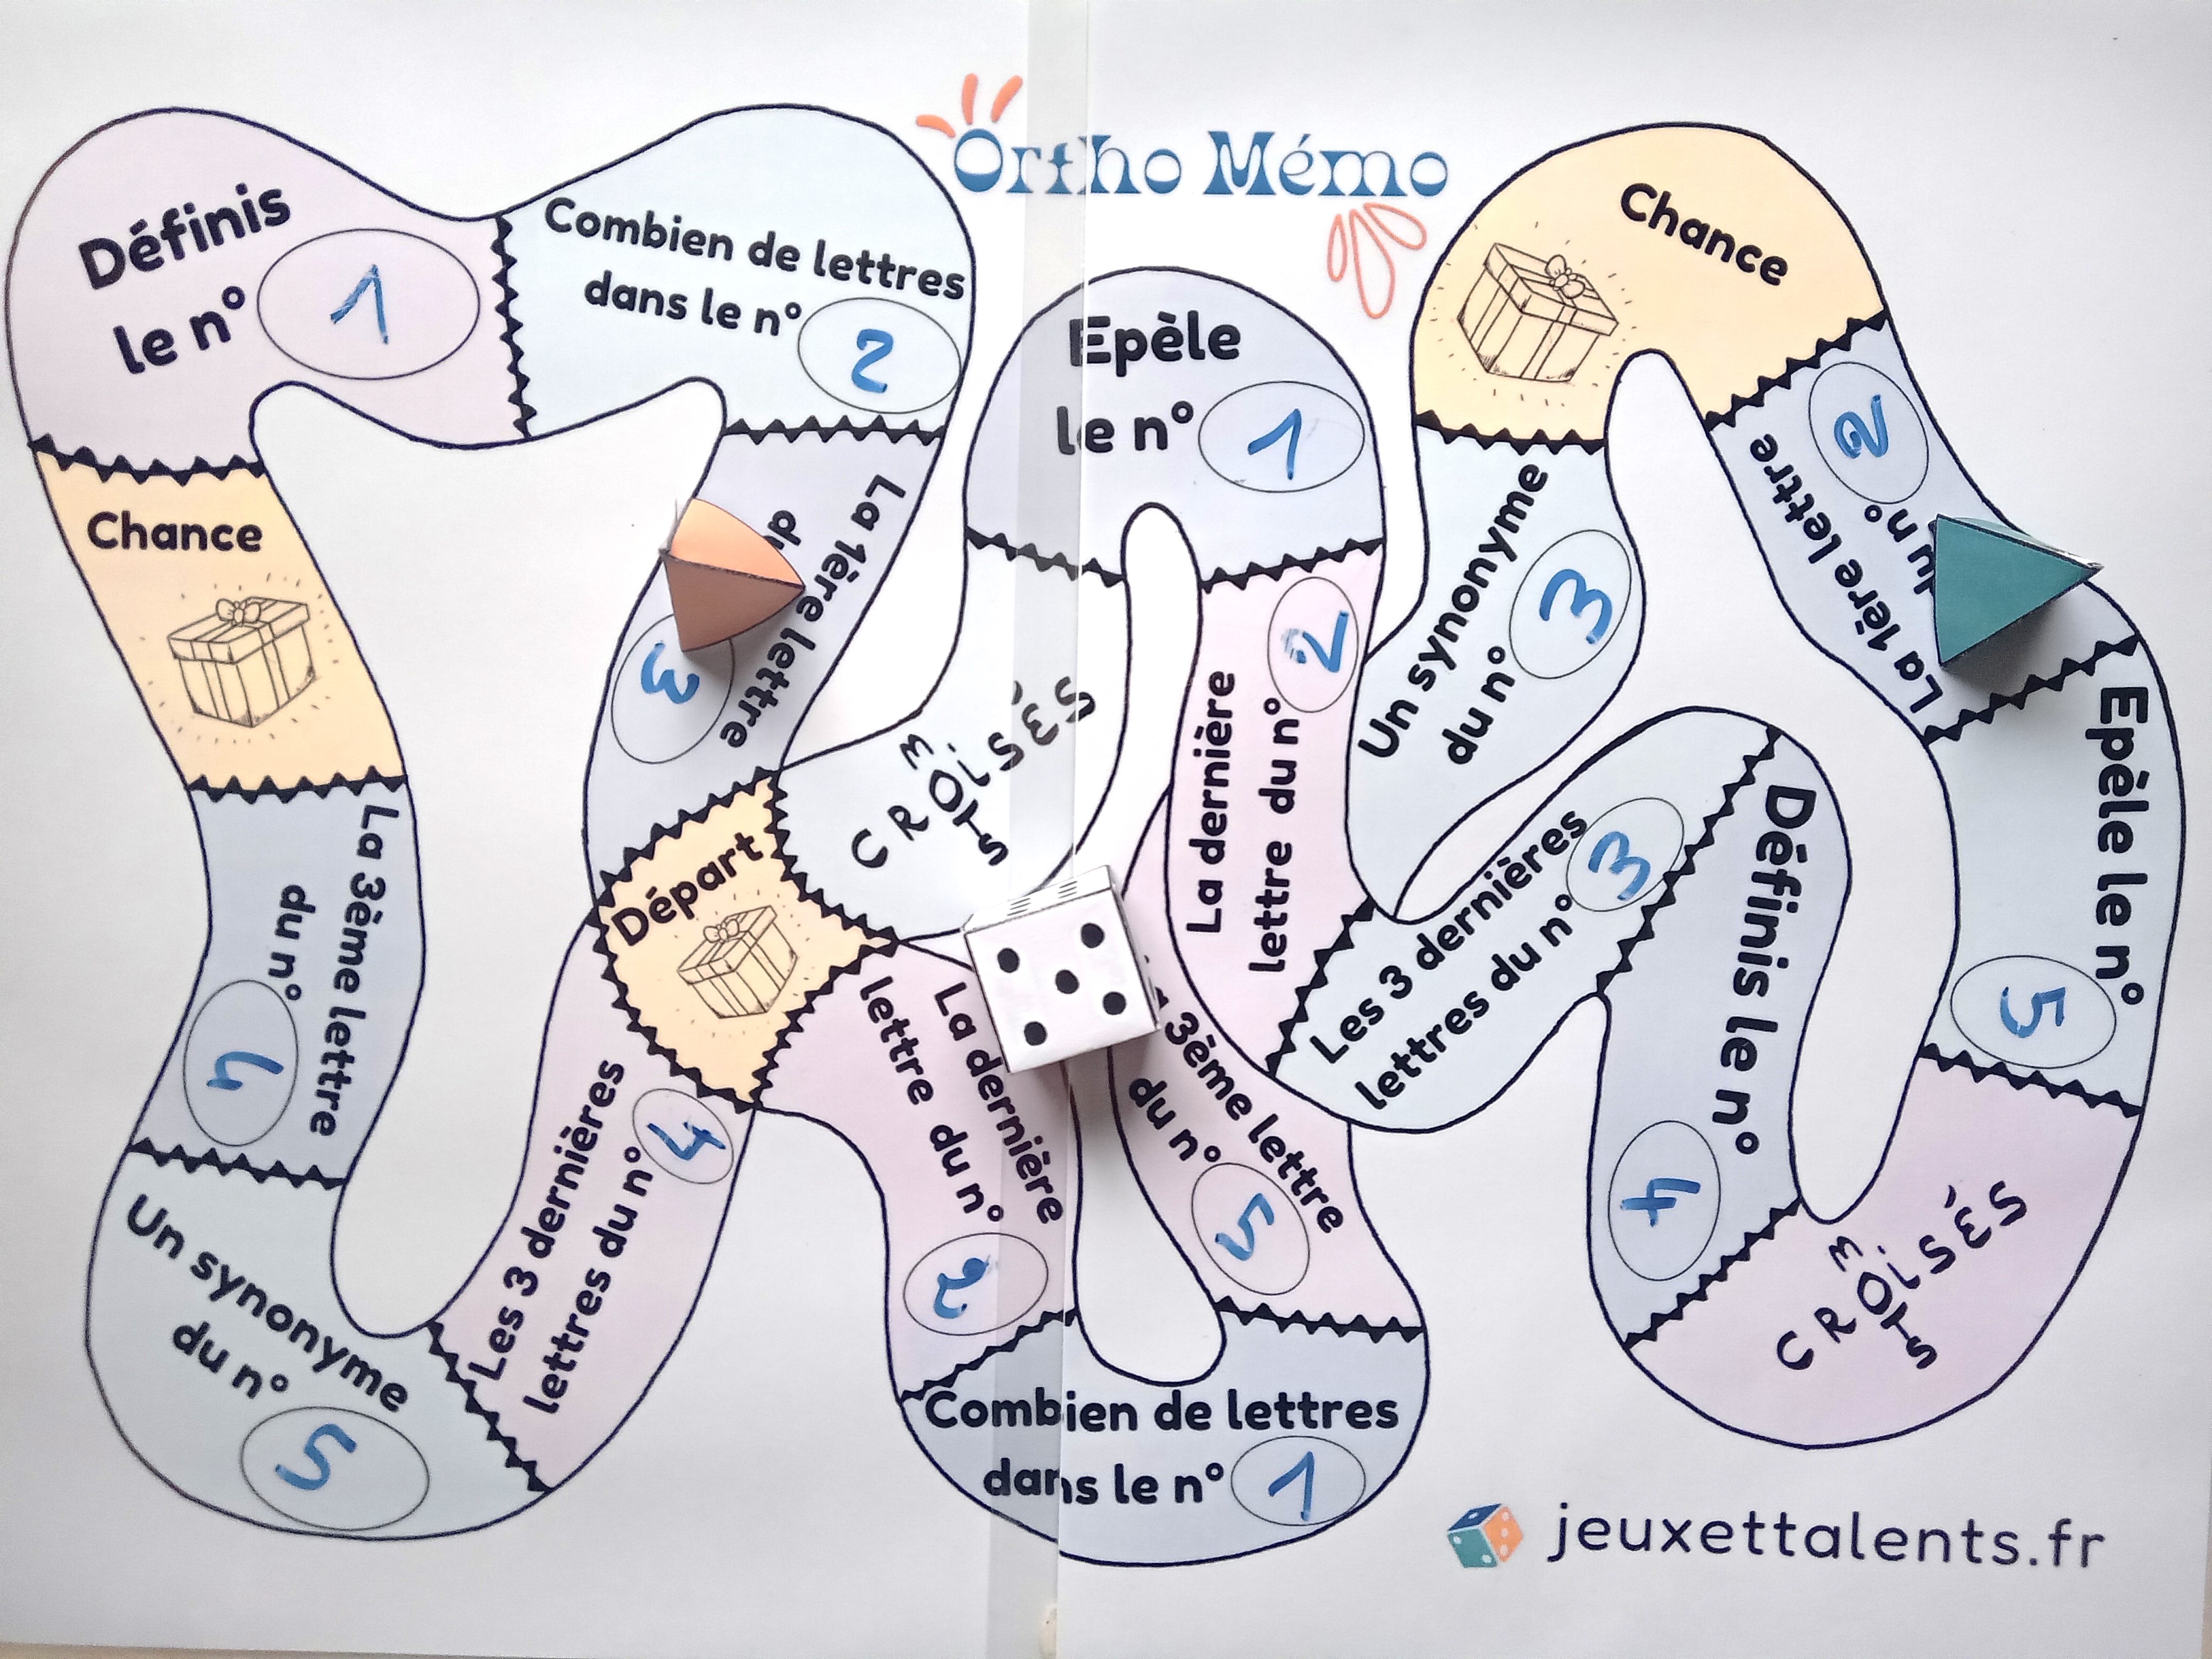 Ortho Mémo
Définis
le n° 1
Combien de lettres
dans le n° 2
Chance
La 1ère lettre
du n° 3
Départ
La 3ème lettre
du n° 4
Un synonyme
du n° 5
Les 3 dernières
lettres du n° 4
MOTS
CROISÉS
Epèle
le n° 1
La dernière
lettre du n° 2
La dernière
lettre du n° 2
3ème lettre
du n° 5
Combien de lettres
dans le n° 1
Chance
Un synonyme
du n° 3
La 1ère lettre
du n° 2
Les 3 dernières
lettres du n° 3
Définis le n° 4
Epèle le n° 5
MOTS
CROISÉS
jeuxettalents.fr